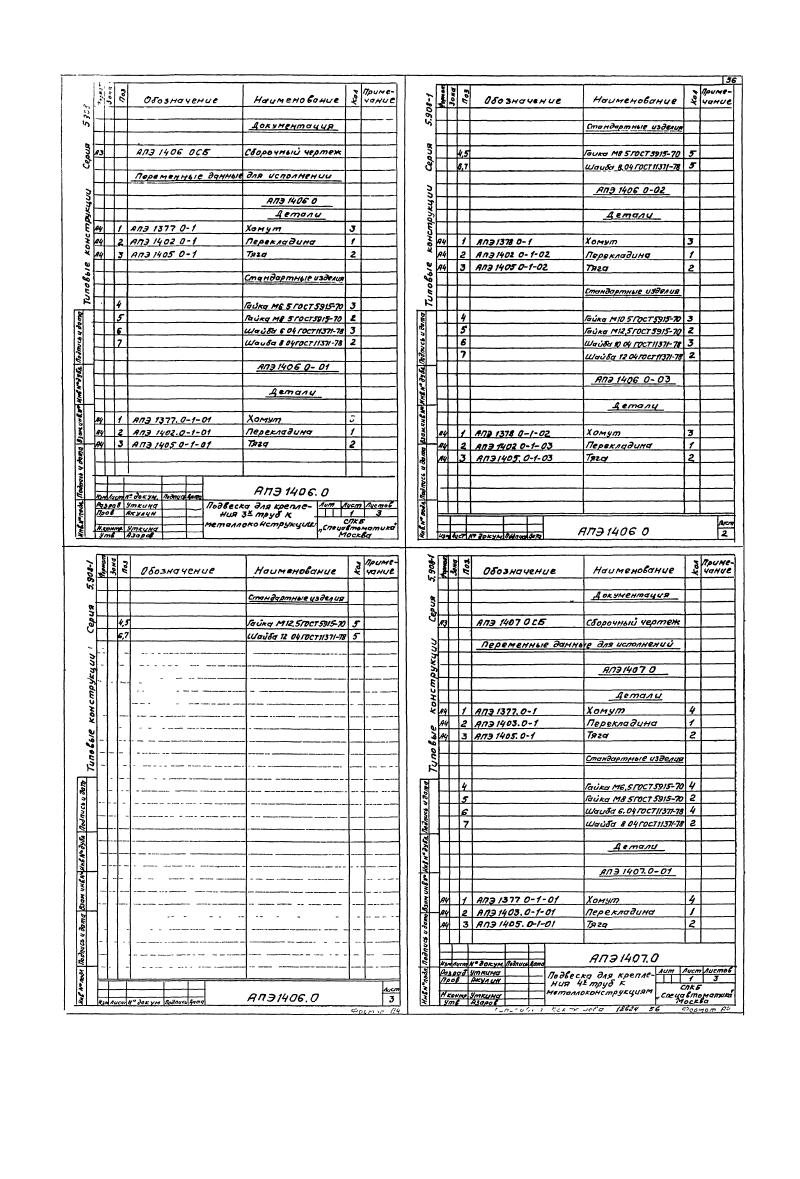 56
Серия 5.908
Типовые конструкции
Зона Поз Обозначение Наименование Кол Примечание
Документация
А3 АПЭ 1406 0СБ Сборочный чертеж
Переменные данные для исполнении
АПЭ 1406 0
Детали
А4 1 АПЭ 1377 0-1 Хомут 3
А4 2 АПЭ 1402 0-1 Перекладина 1
А4 3 АПЭ 1405 0-1 Тяга 2
Стандартные изделия
4 Гайка М6 5 ГОСТ 5915-70 3
5 Гайка М8 5 ГОСТ 5915-70 2
6 Шайба 6 04 ГОСТ 11371-78 3
7 Шайба 8 04 ГОСТ 11371-78 2
АПЭ 1406 0-01
Детали
А4 1 АПЭ 1377. 0-1-01 Хомут
А4 2 АПЭ 1402.0-1-01 Перекладина 1
А4 3 АПЭ 1405 0-1-01 Тяга 2
Инв.№подл. Подпись и дата Взам.инв.№ Инв№дубл. Подпись и дата
АПЭ 1406.0
Изм Лист № докум. Подпись Дата
Разраб Уткина
Пров Якулин
Н.контр Уткина
Утв Азаров
Подвеска для крепле-
ния 3х труб к
металлоконструкции
Лит Лист Листов
1 3
СПКБ
"Спецавтоматика"
Москва
Серия 5.908-1
Типовые конструкции
Формат Зона Поз Обозначение Наименование Кол Примечание
Стандартные изделия
4,5 Гайка М8 5 ГОСТ 5915-70 5
6,7 Шайба 8.04 ГОСТ 11371-78 5
АПЭ 1406 0-02
Детали
А4 1 АПЭ 1378 0-1 Хомут 3
А4 2 АПЭ 1402 0-1-02 Перекладина 1
А4 3 АПЭ 1405 0-1-02 Тяга 2
Стандартные изделия
4 Гайка М10 5 ГОСТ 5915-70 3
5 Гайка М12,5 ГОСТ 5915-70 2
6 Шайба 10 04 ГОСТ 11371-78 3
7 Шайба 12 04 ГОСТ 11371-78 2
АПЭ 1406 0-03
Детали
А4 1 АПЭ 1378 0-1-02 Хомут 3
А4 2 АПЭ 1402 0-1-03 Перекладина 1
А4 3 АПЭ 1405. 0-1-03 Тяга 2
Инв.№подл. Подпись и дата Взам.инв.№ Инв№дубл. Подпись и дата
Изм Лист № докум Подпись Дата
АПЭ 1406 0
Лист
2
Серия 5.908-1
Типовые конструкции
Формат Зона Поз Обозначение Наименование Кол Примечание
Стандартные изделия
4,5 Гайка М12,5 ГОСТ 5915-70 5
6,7 Шайба 12 04 ГОСТ 11371-78 5
Инв.№подл. Подпись и дата Взам инв.№ Инв№дубл. Подпись и дата
Изм Лист № докум Подпись Дата
АПЭ 1406.0
Лист
3
Формат А4
Серия 5.908-1
Типовые конструкции
Формат Зона Поз. Обозначение Наименование Кол Примечание
Документация
А3 АПЭ 1407 0СБ Сборочный чертеж
Переменные данные для исполнений
АПЭ 1407 0
Детали
А4 1 АПЭ 1377. 0-1 Хомут 4
А4 2 АПЭ 1403. 0-1 Перекладина 1
А4 3 АПЭ 1405. 0-1 Тяга 2
Стандартные изделия
4 Гайка М6,5 ГОСТ 5915-70 4
5 Гайка М8 5 ГОСТ 5915-70 2
6 Шайба 6.04 ГОСТ 11371-78 4
7 Шайба 8 04 ГОСТ 11371-78 2
Детали
АПЭ 1407. 0-01
А4 1 АПЭ 1377 0-1-01 Хомут 4
А4 2 АПЭ 1403. 0-1-01 Перекладина 1
А4 3 АПЭ 1405. 0-1-01 Тяга 2
Инв.№подл. Подпись и дата Взам инв.№ Инв№дубл. Подпись и дата
АПЭ 1407.0
Изм Лист № докум. Подпись Дата
Разраб Уткина
Пров Якулин
Н.контр Уткина
Утв Азаров
Подвеска для крепле-
ния 4х труб к
металлоконструкциям
Лит Лист Листов
1 3
СПКБ
"Спецавтоматика"
Москва
18624 56